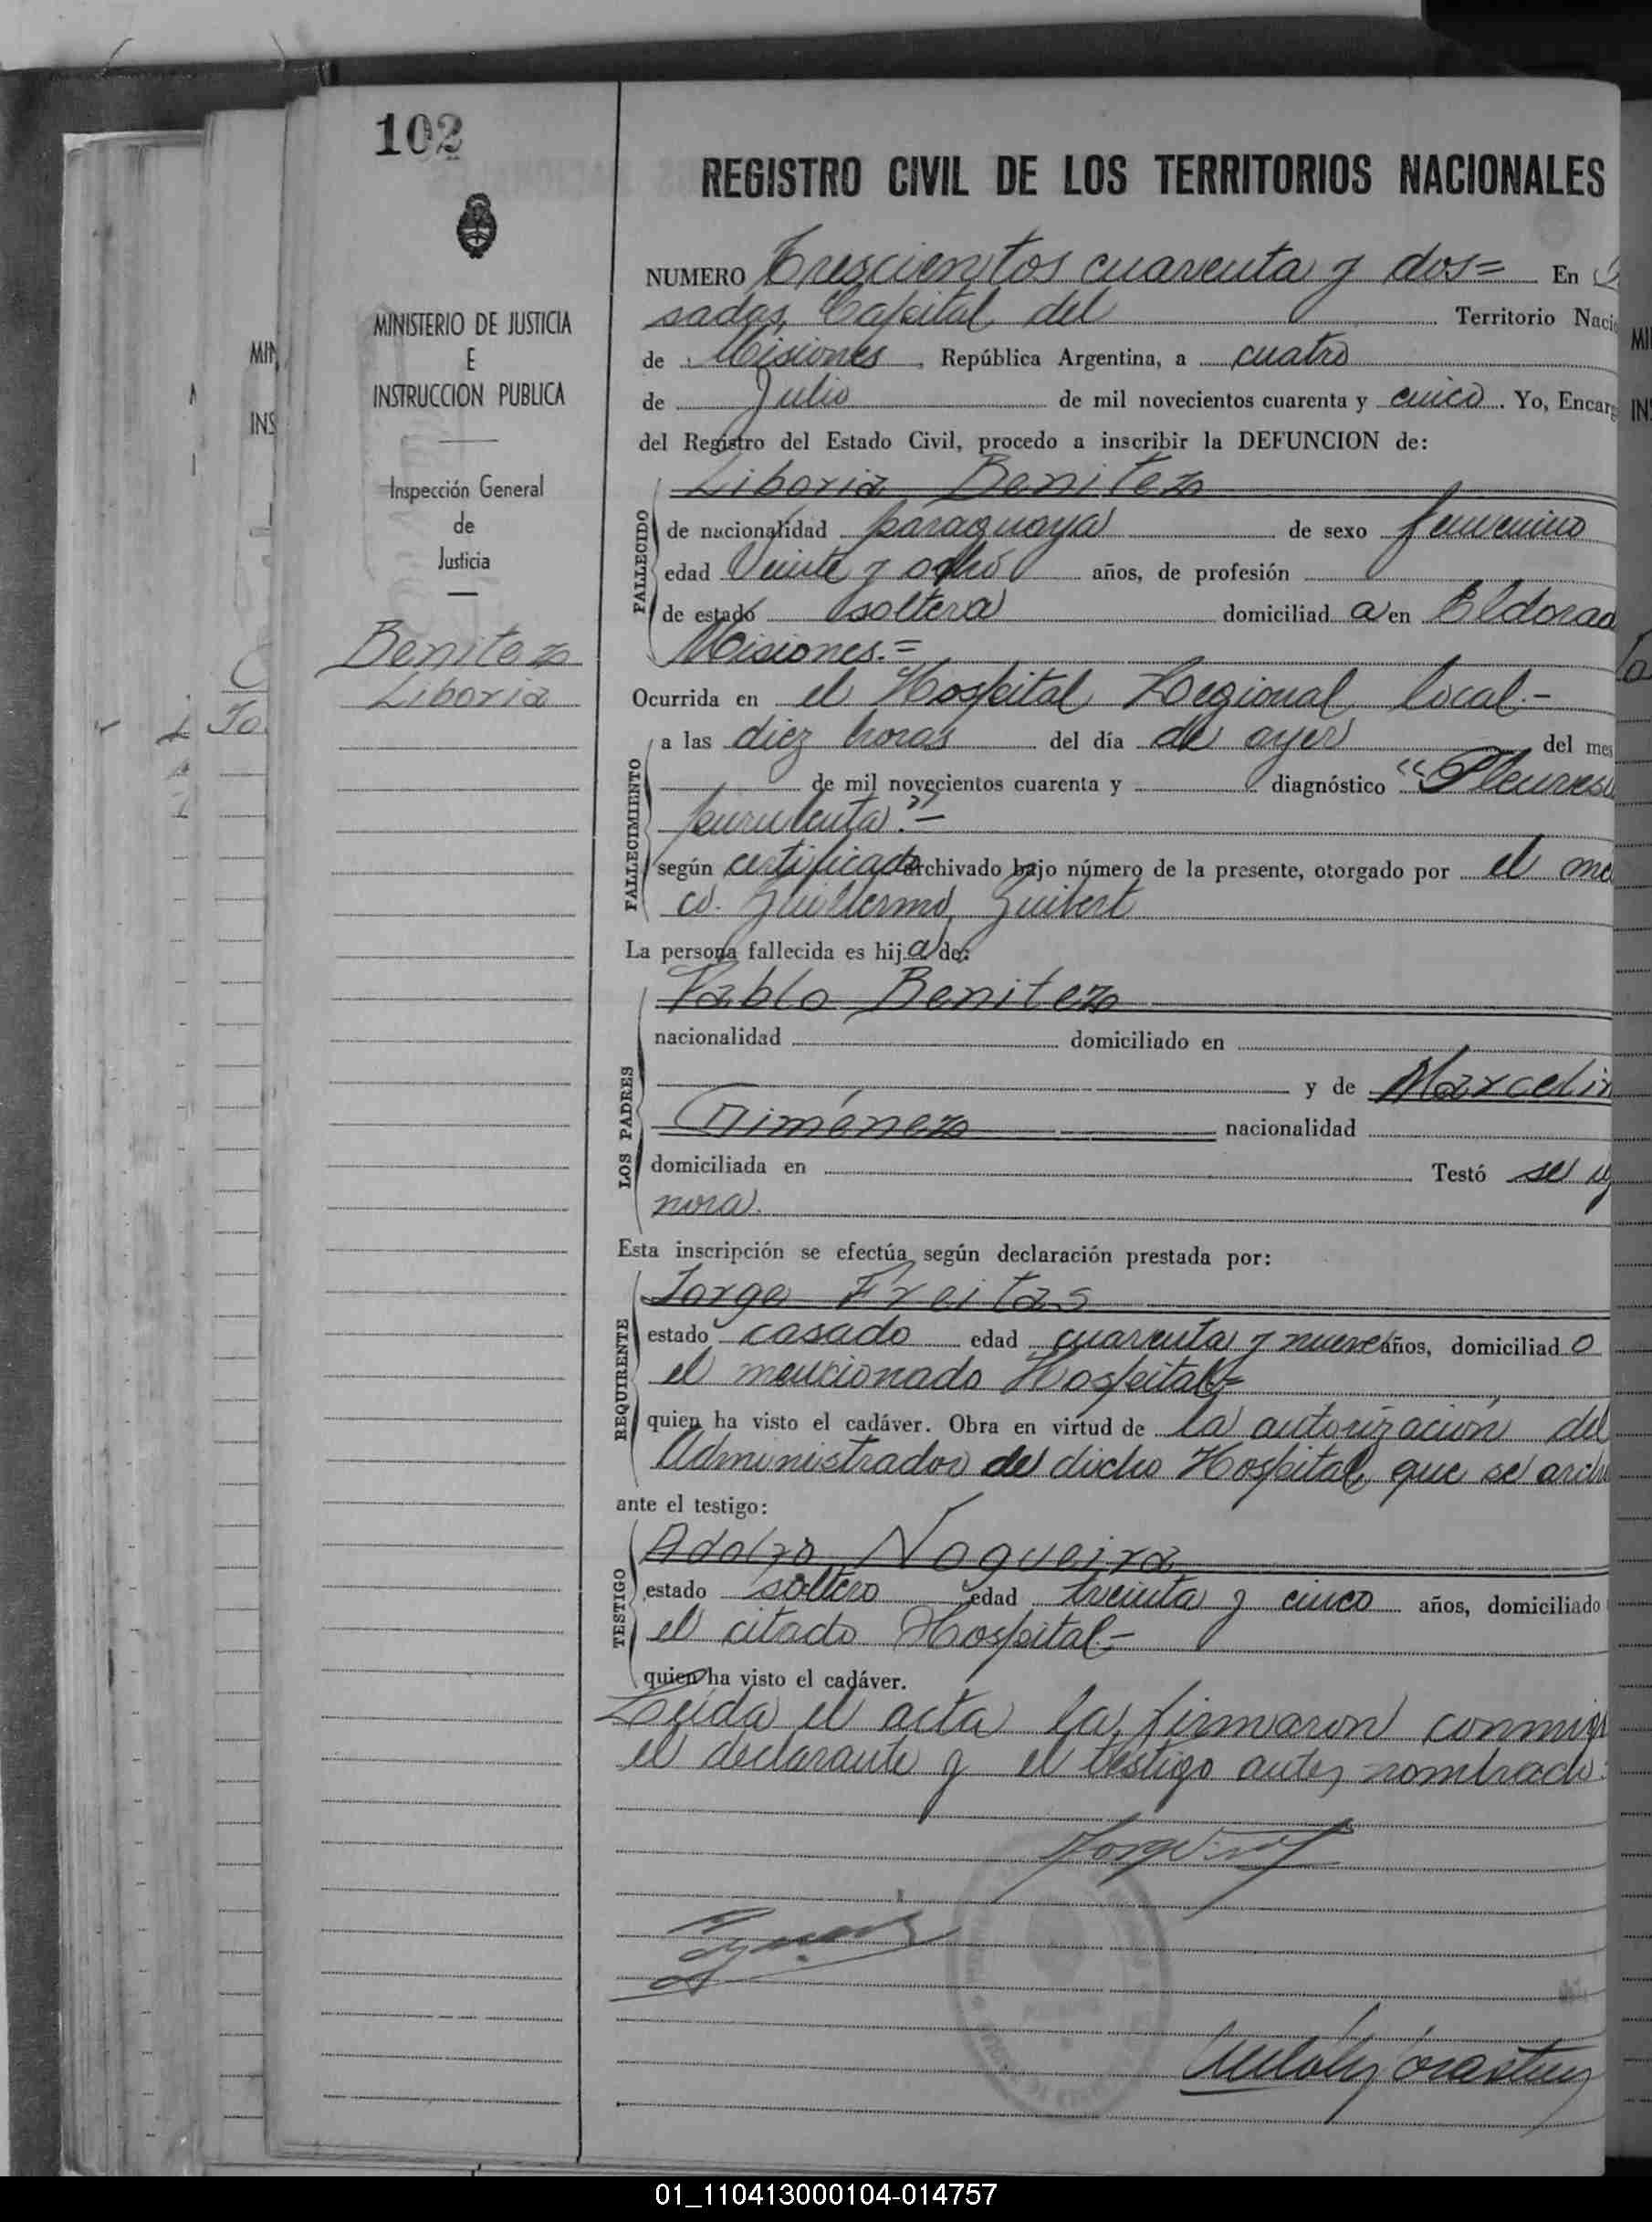 102
REGISTRO CIVIL DE LOS TERRITORIOS NACIONALES
MINISTERIO DE JUSTICIA
E
INSTRUCCION PUBLICA
Inspección General
de
Justicia
Benitez
Liboria
NUMERO Trescientos cuarenta y dos= En
sadas Capital del Territorio Naci
de Misiones, República Argentina, a cuatro
de Julio de mil novecientos cuarenta y cinco. Yo, Encarg
del Registro del Estado Civil, procedo a inscribir la DEFUNCION de:
Liboria Benitez
FALLECIDO
de nacionalidad paraguaya de sexo femenino
edad Veinte y ocho años, de profesión
de estado soltera domiciliad a en Eldorad
Misiones.=
Ocurrida en el Hospital Regional local.-
FALLECIMIENTO
a las diez horas del día de ayer del mes
de mil novecientos cuarenta y diagnóstico "Pleuresi
purulenta".-
según certificado archivado bajo número de la presente, otorgado por el mé
co. Guillermo Guibert
La persona fallecida es hija de:
LOS PADRES
Pablo Benitez
nacionalidad domiciliado en
y de Marcelin
Giménez nacionalidad
domiciliada en Testó se ig
nora.
Esta inscripción se efectúa según declaración prestada por:
REQUIRENTE
Jorge Freitas
estado casado edad cuarenta y nueve años, domiciliad o
el mencionado Hospital.=
quien ha visto el cadáver. Obra en virtud de la autorización del
Administrador de dicho Hospital, que se archi
ante el testigo:
TESTIGO
Adolfo Nogueira
estado soltero edad treinta y cinco años, domiciliado
el citado Hospital.-
quien ha visto el cadáver.
Leída el acta la firmaron conmigo
el declarante y el testigo antes nombrado.
01_110413000104-014757